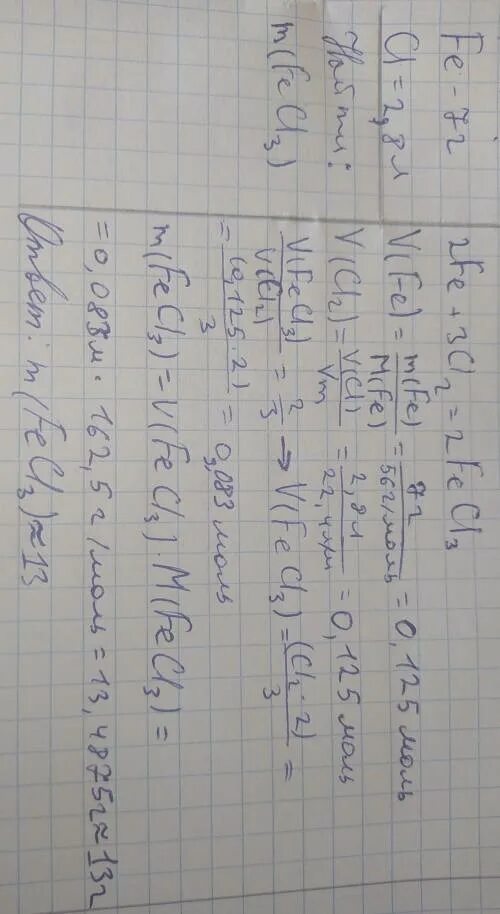 Fe - 7г
Cl = 2,8л
Найти:
m(FeCl₃)
2Fe + 3Cl₂ = 2FeCl₃
V(Fe) = m(Fe)/M(Fe) = 7г/56г/моль = 0,125 моль
V(Cl₂) = V(Cl)/Vm = 2,8л/22,4л/м = 0,125 моль
V(FeCl₃)/V(Cl₂) = 2/3 → V(FeCl₃) = (Cl₂·2)/3 =
= (0,125·2)/3 = 0,083 моль
m(FeCl₃) = V(FeCl₃)·M(FeCl₃) =
= 0,083м · 162,5г/моль = 13,4875г ≈ 13г
Ответ: m(FeCl₃) ≈ 13